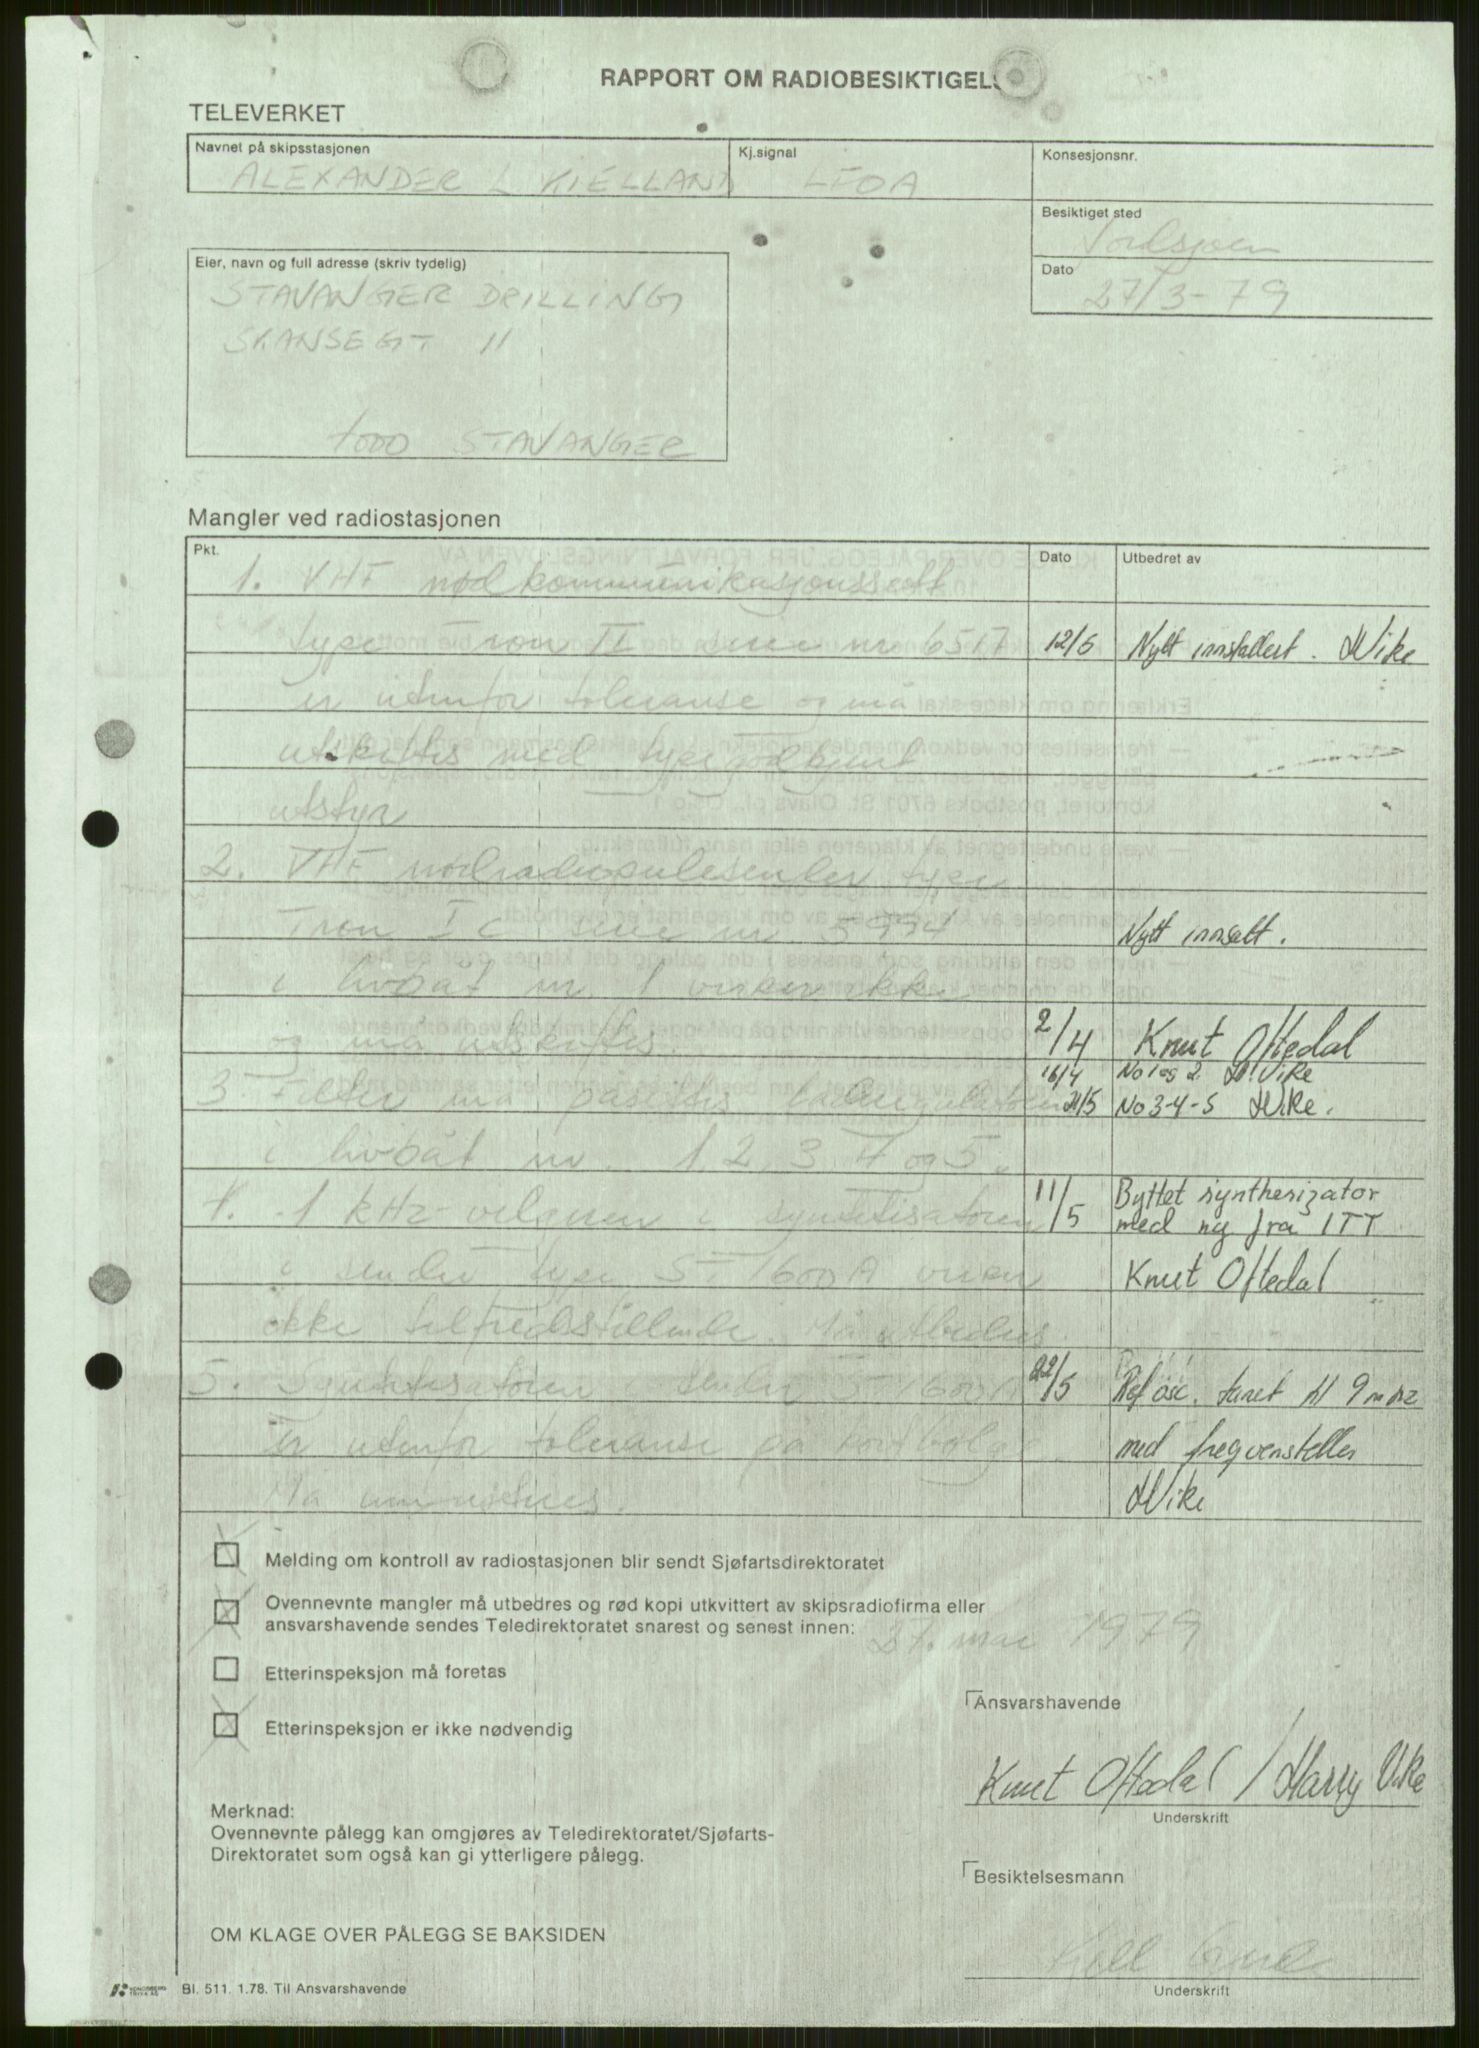 RAPPORT OM RADIOBESIKTIGELS
TELEVERKET
Navnet på skipsstasjonen
ALEXANDER L KIELLAND
Kj.signal
LFOA
Konsesjonsnr.
Besiktiget sted
Nordsjøen
Dato
27/3-79
Eier, navn og full adresse (skriv tydelig)
STAVANGER DRILLING
SKANSEGT 11
4000 STAVANGER
Mangler ved radiostasjonen
Pkt.
Dato
Utbedret av
1. VHF nødkommunikasjonssett
type Tron II serie nr 6517 12/6 Nytt innstallert. HVike
er utenfor toleranse og må
utskiftes med typegodkjent
utstyr
2. VHF nødradiopeilesender type
Tron I C serie nr. 5994 Nytt innsatt.
i livbåt nr. 1 virker ikke
og må utskiftes. 2/4 Knut Oftedal
16/4 No 1 og 2. H.Vike
3. Filter må påsettes laderegulatoren 21/5 No 3-4-5 HVike.
i livbåt nr. 1, 2, 3, 4 og 5.
4. 1 kHz velgeren i syntetisatoren 11/5 Byttet synthesizator
med ny fra ITT
i sender type ST 1600A virker Knut Oftedal
ikke tilfredstillende. Må utbedres
5. Syntetisatoren i sender ST 1600A 22/5 Ref osc. tunet til 9 mhz
er utenfor toleranse på kortbølge med freqvensteller
Må HVike
Melding om kontroll av radiostasjonen blir sendt Sjøfartsdirektoratet
Ovennevnte mangler må utbedres og rød kopi utkvittert av skipsradiofirma eller
ansvarshavende sendes Teledirektoratet snarest og senest innen: 27. mai 1979
Etterinspeksjon må foretas
Etterinspeksjon er ikke nødvendig
Ansvarshavende
Knut Oftedal / Harry Vike
Underskrift
Merknad:
Ovennevnte pålegg kan omgjøres av Teledirektoratet/Sjøfarts-
Direktoratet som også kan gi ytterligere pålegg.
Besiktelsesmann
OM KLAGE OVER PÅLEGG SE BAKSIDEN
Kjell
Underskrift
Bl. 511. 1.78. Til Ansvarshavende